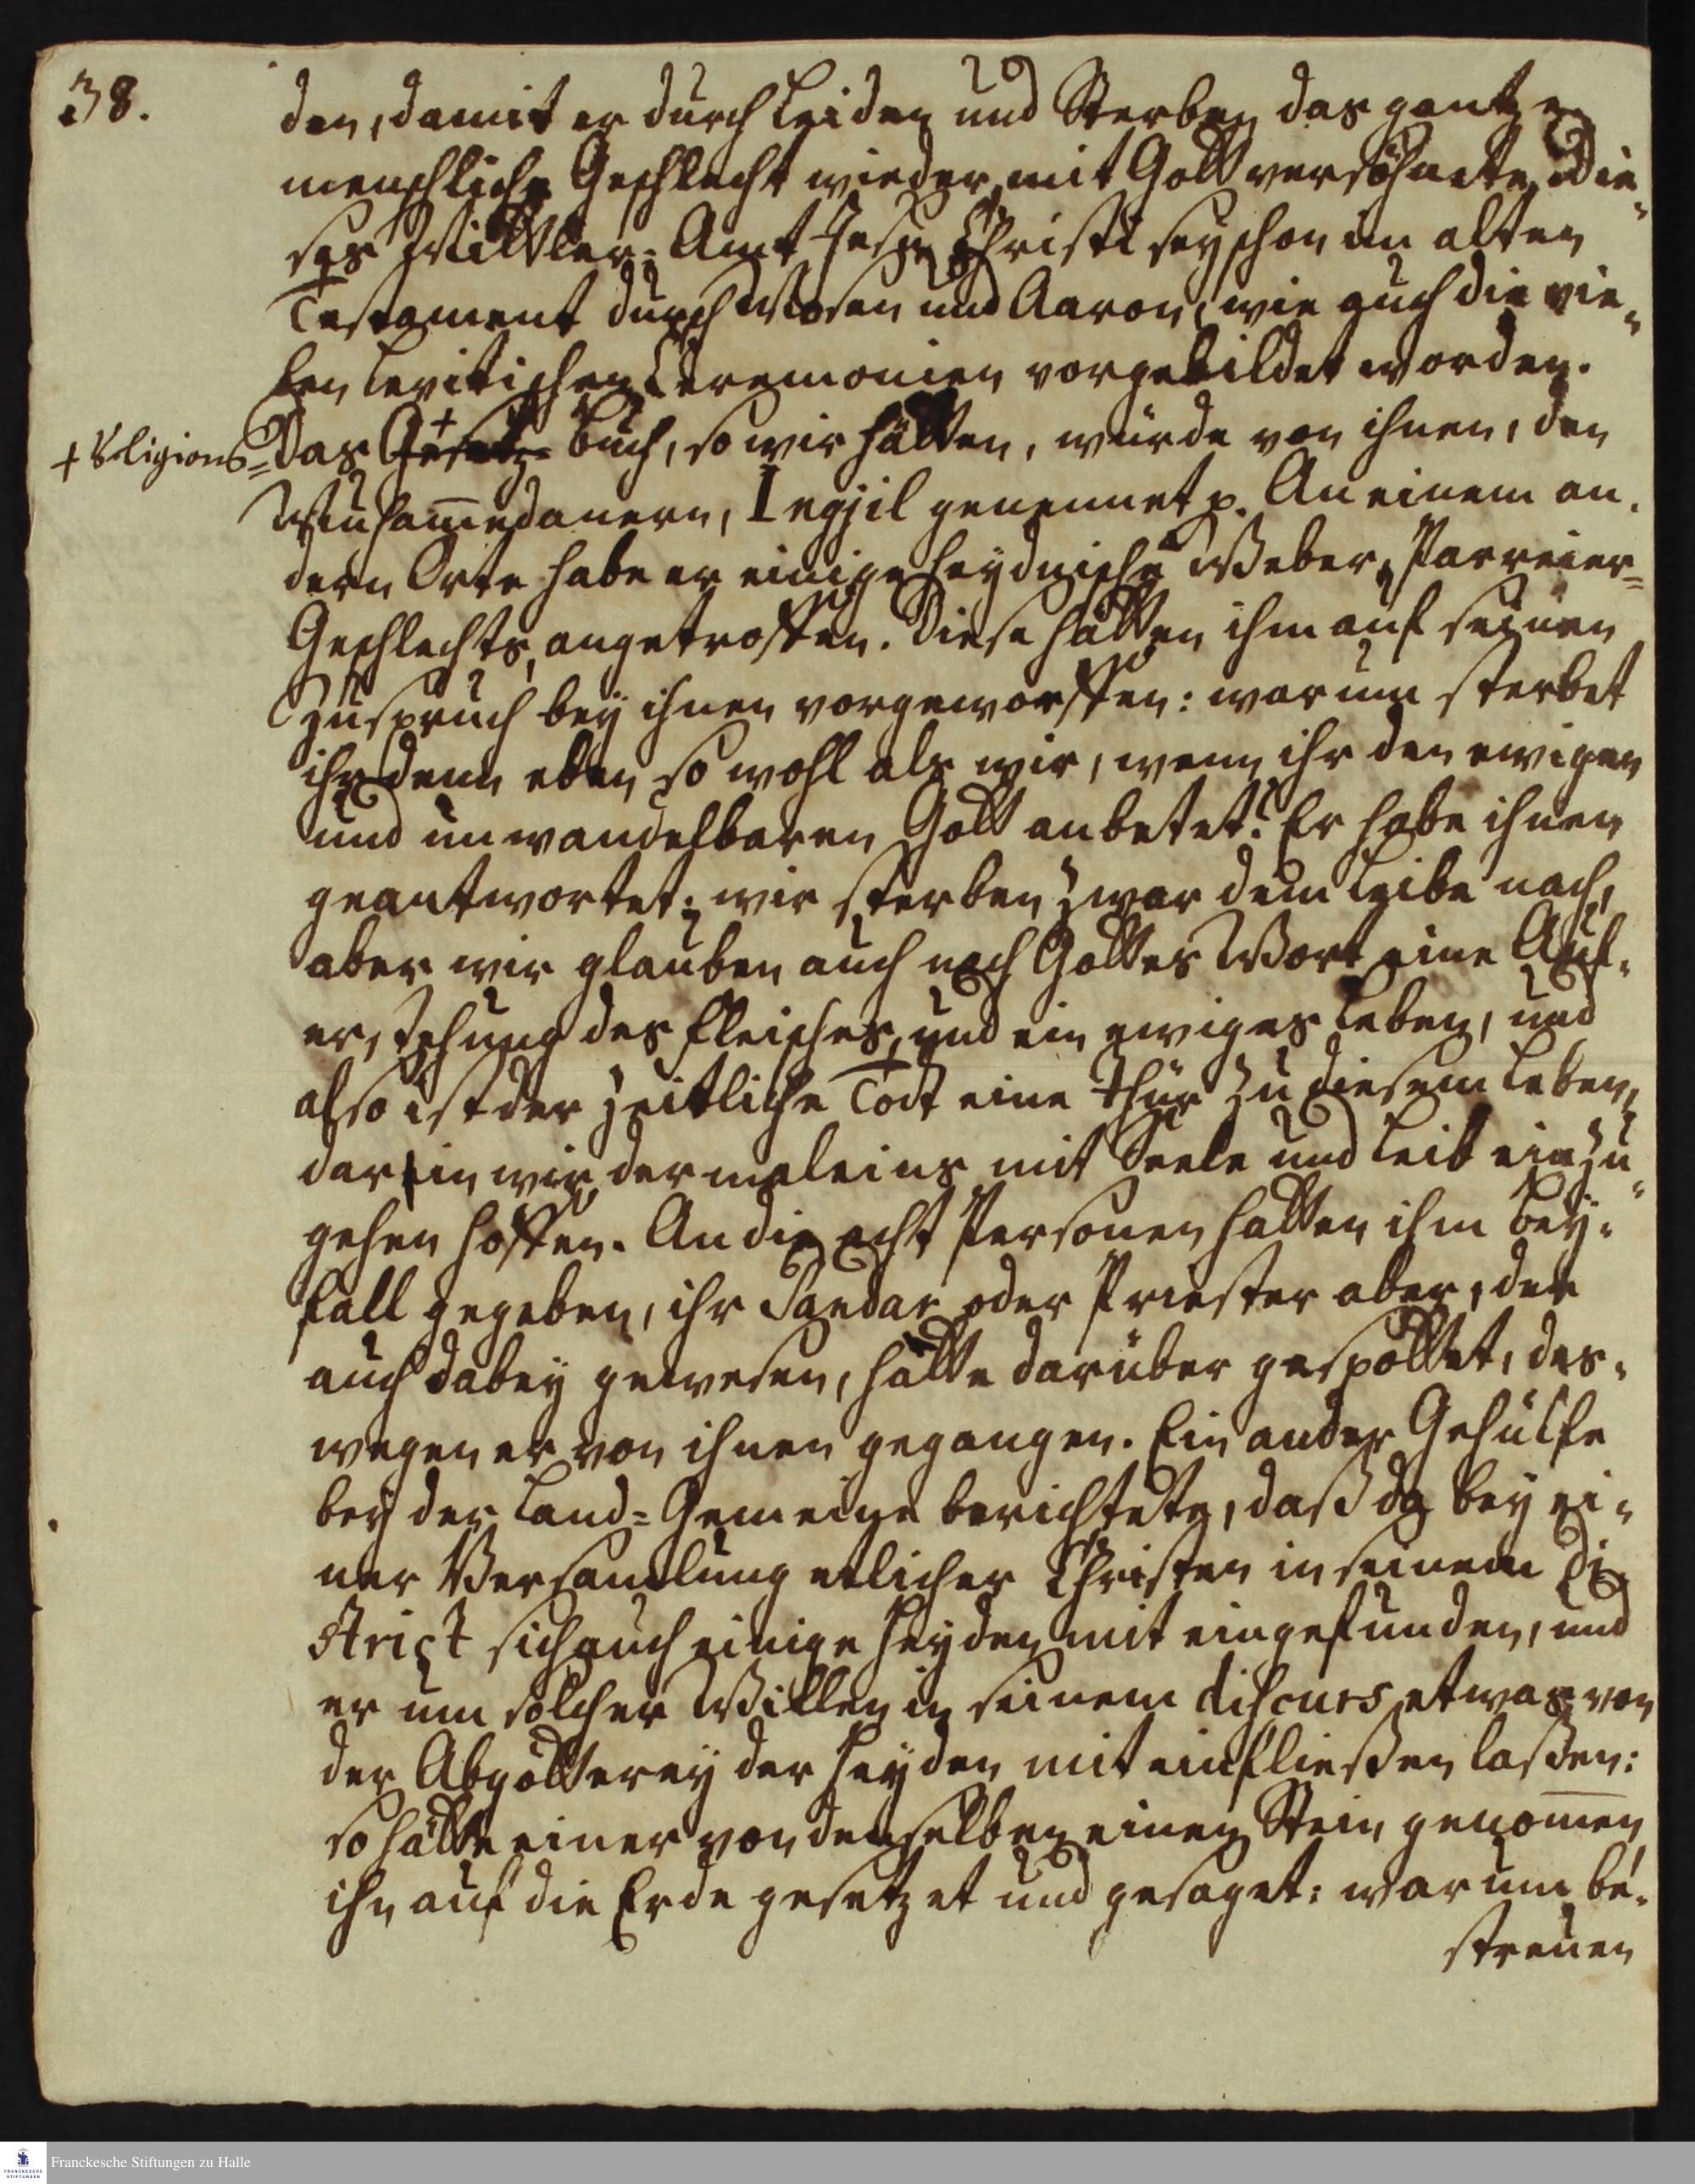 38.
den, damit er durch Leiden und Sterben das gantze
menschliche Geschlecht wieder mit Gott versöhnete. Die„
ses Mittler-Amt Jesu Christi sey schon im alten
Testament durch Mosen und Aaron, wie auch die vie„
len Levitischen Ceremonien vorgebildet worden.
+ Religions= Das Gesetz-+ Buch, so wir hätten, würde von ihnen, den
Muham̅edanern, Ingjil genennet p. An einem an„
dern Orte habe er einige heydnische Weber, Parreier=
Geschlechts, angetroffen. Diese hätten ihm auf seinen
Zuspruch bey ihnen vorgeworffen: warum sterbet
ihr denn eben so wohl als wir, wenn ihr den ewigen
und unwandelbaren Gott anbetet? Er habe ihnen
geantwortet: wir sterben zwar dem Leibe nach,
aber wir glauben auch nach Gottes Wort eine Auf„
erstehung des Fleisches, und ein ewiges Leben, und
also ist der zeitliche Todt eine Thür zu diesem Leben,
darein wir dermaleins mit Seele und Leib einzu„
gehen hoffen. An die acht Personen hätten ihm Bey„
fall gegeben, ihr Pandar oder Priester aber, der
auch dabey gewesen, hätte darüber gespottet, des„
wegen er von ihnen gegangen. Ein ander Gehülfe
bey der Land-Gemeine berichtete, daß da bey ei„
ner Versamlung etlicher Christen in seinem Di
strict sich auch einige Heyden mit eingefunden, und
er um solcher Willen in seinem discurs etwas von
der Abgötterey der Heyden mit einfließen laßen:
so hätte einer von denselben einen Stein genom̅en,
ihn auf die Erde gesetzet und gesaget: warum be„
streuen
Franckesche Stiftungen zu Halle